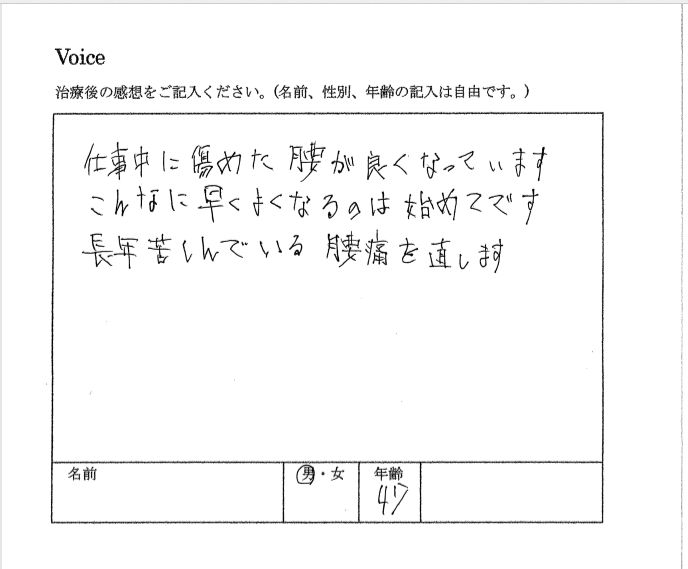 Voice
治療後の感想をご記入ください。(名前、性別、年齢の記入は自由です。)
仕事中に傷めた腰が良くなっています
こんなに早くよくなるのは始めてです
長年苦しんでいる腰痛を直します
名前
男・女
年齢
47